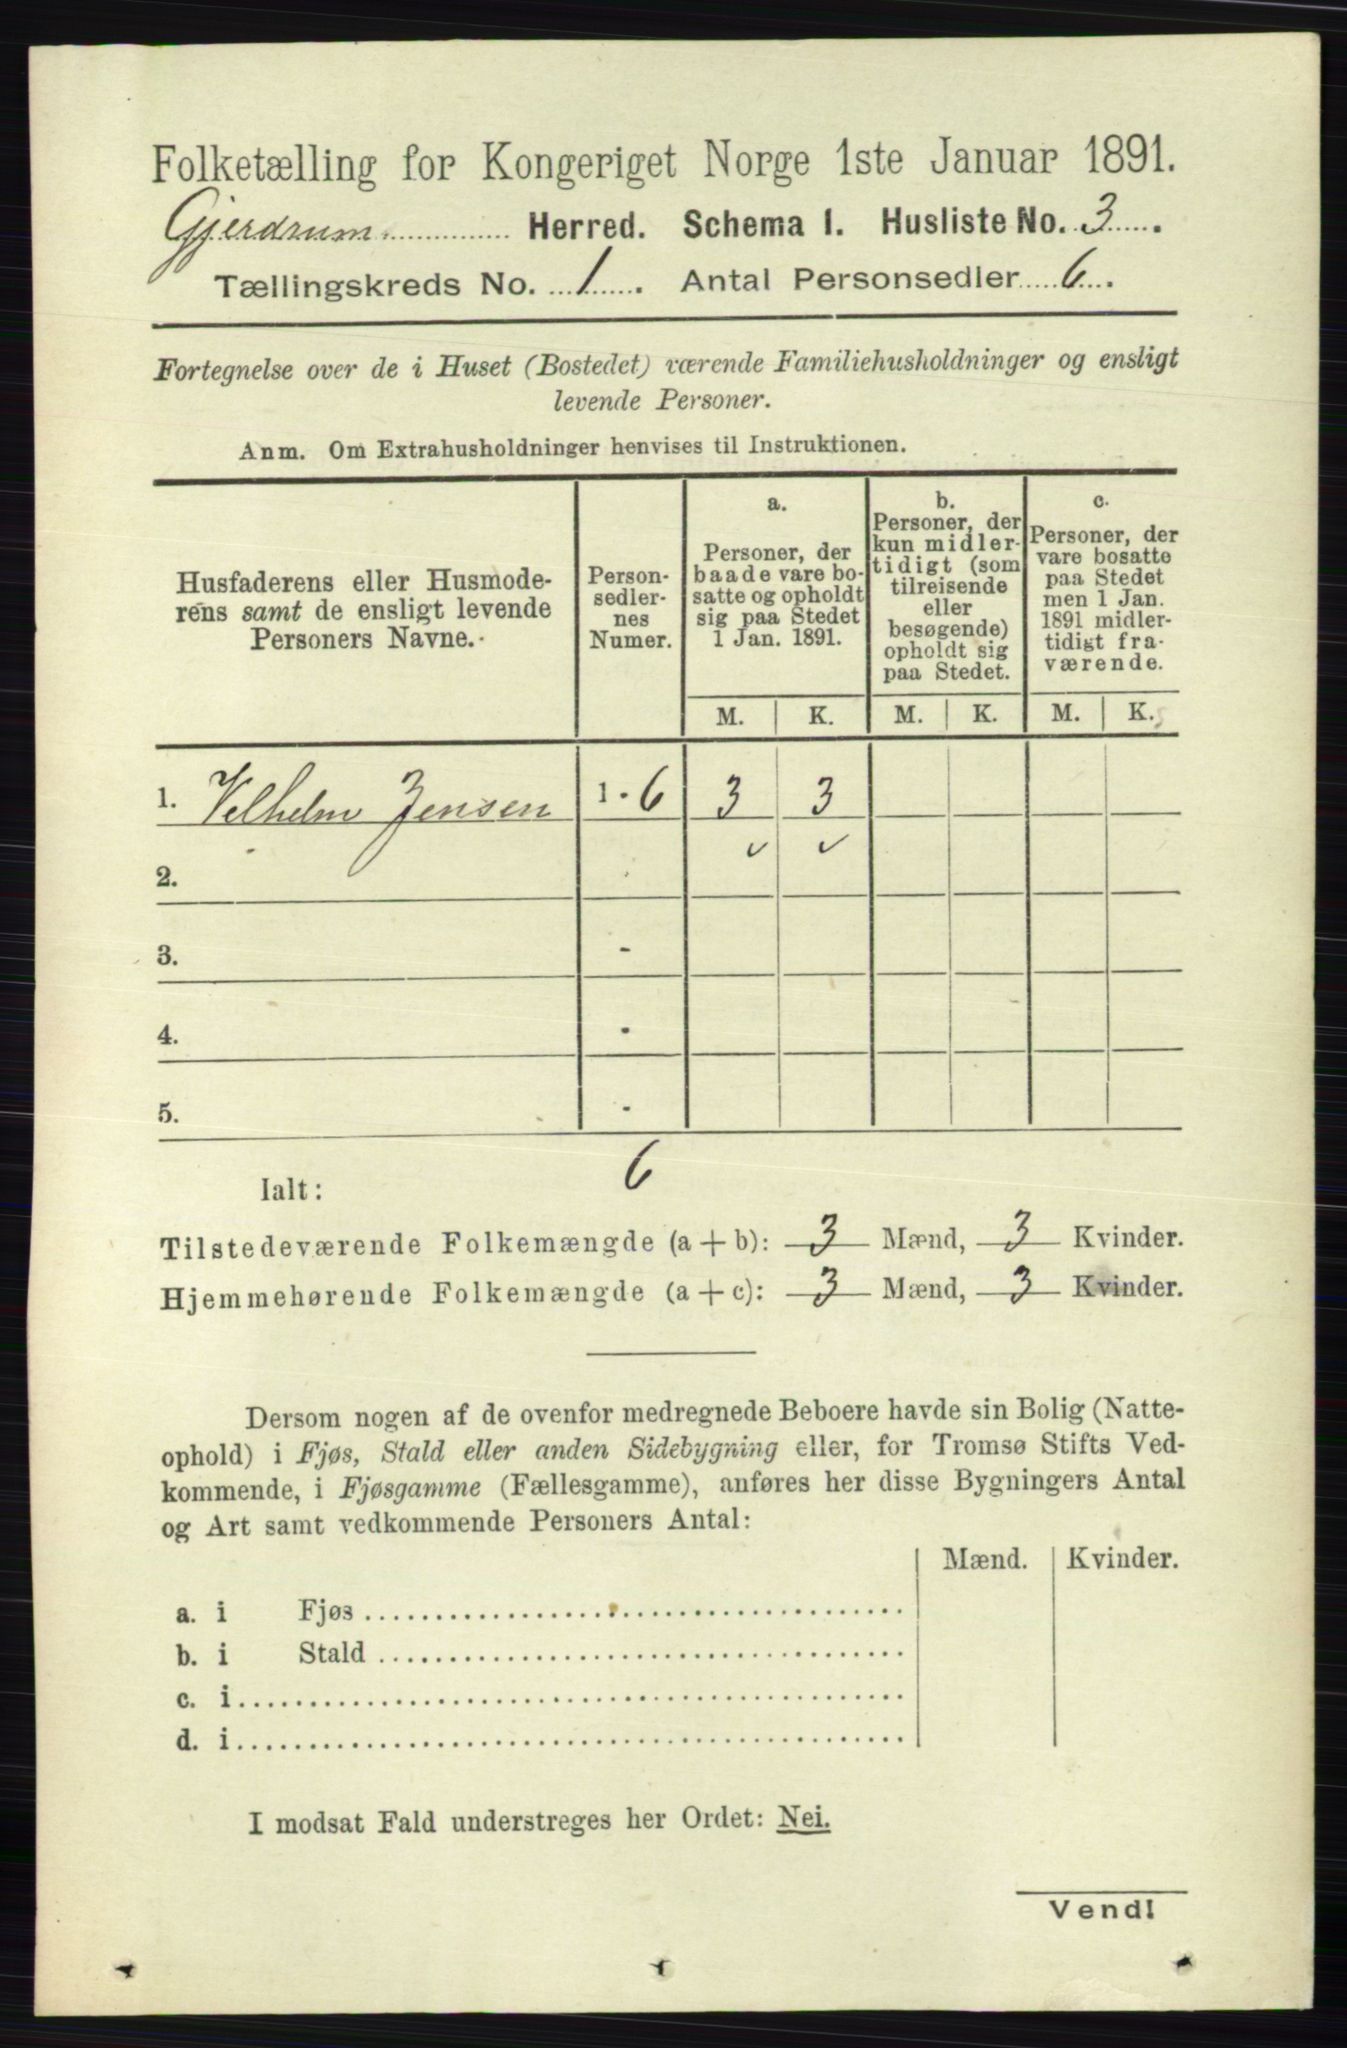 Folketælling for Kongeriget Norge 1ste Januar 1891.
Gjerdrum Herred. Schema I. Husliste No. 3.
Tællingskreds No. 1. Antal Personsedler 6.
Fortegnelse over de i Huset (Bostedet) værende Familiehusholdninger og ensligt
levende Personer.
Anm. Om Extrahusholdninger henvises til Instruktionen.
Husfaderens eller Husmode-
rens samt de ensligt levende
Personers Navne.
Person-
sedler-
nes
Numer.
a.
Personer, der
baade vare bo-
satte og opholdt
sig paa Stedet
1 Jan. 1891.
b.
Personer, der
kun midler-
tidigt (som
tilreisende
eller
besøgende)
opholdt sig
paa Stedet.
c.
Personer, der
vare bosatte
paa Stedet
men 1 Jan.
1891 midler-
tidigt fra-
værende.
M. K. M. K. M. K.
1. Velhelm Jensen 1 - 6 3 3
2. ✓ ✓
3. -
4. -
5. -
Ialt: 6
Tilstedeværende Folkemængde (a + b): 3 Mænd, 3 Kvinder.
Hjemmehørende Folkemængde (a + c): 3 Mænd, 3 Kvinder.
Dersom nogen af de ovenfor medregnede Beboere havde sin Bolig (Natte-
ophold) i Fjøs, Stald eller anden Sidebygning eller, for Tromsø Stifts Ved-
kommende, i Fjøsgamme (Fællesgamme), anføres her disse Bygningers Antal
og Art samt vedkommende Personers Antal:
Mænd. Kvinder.
a. i Fjøs
b. i Stald
c. i
d. i
I modsat Fald understreges her Ordet: Nei.
Vend!